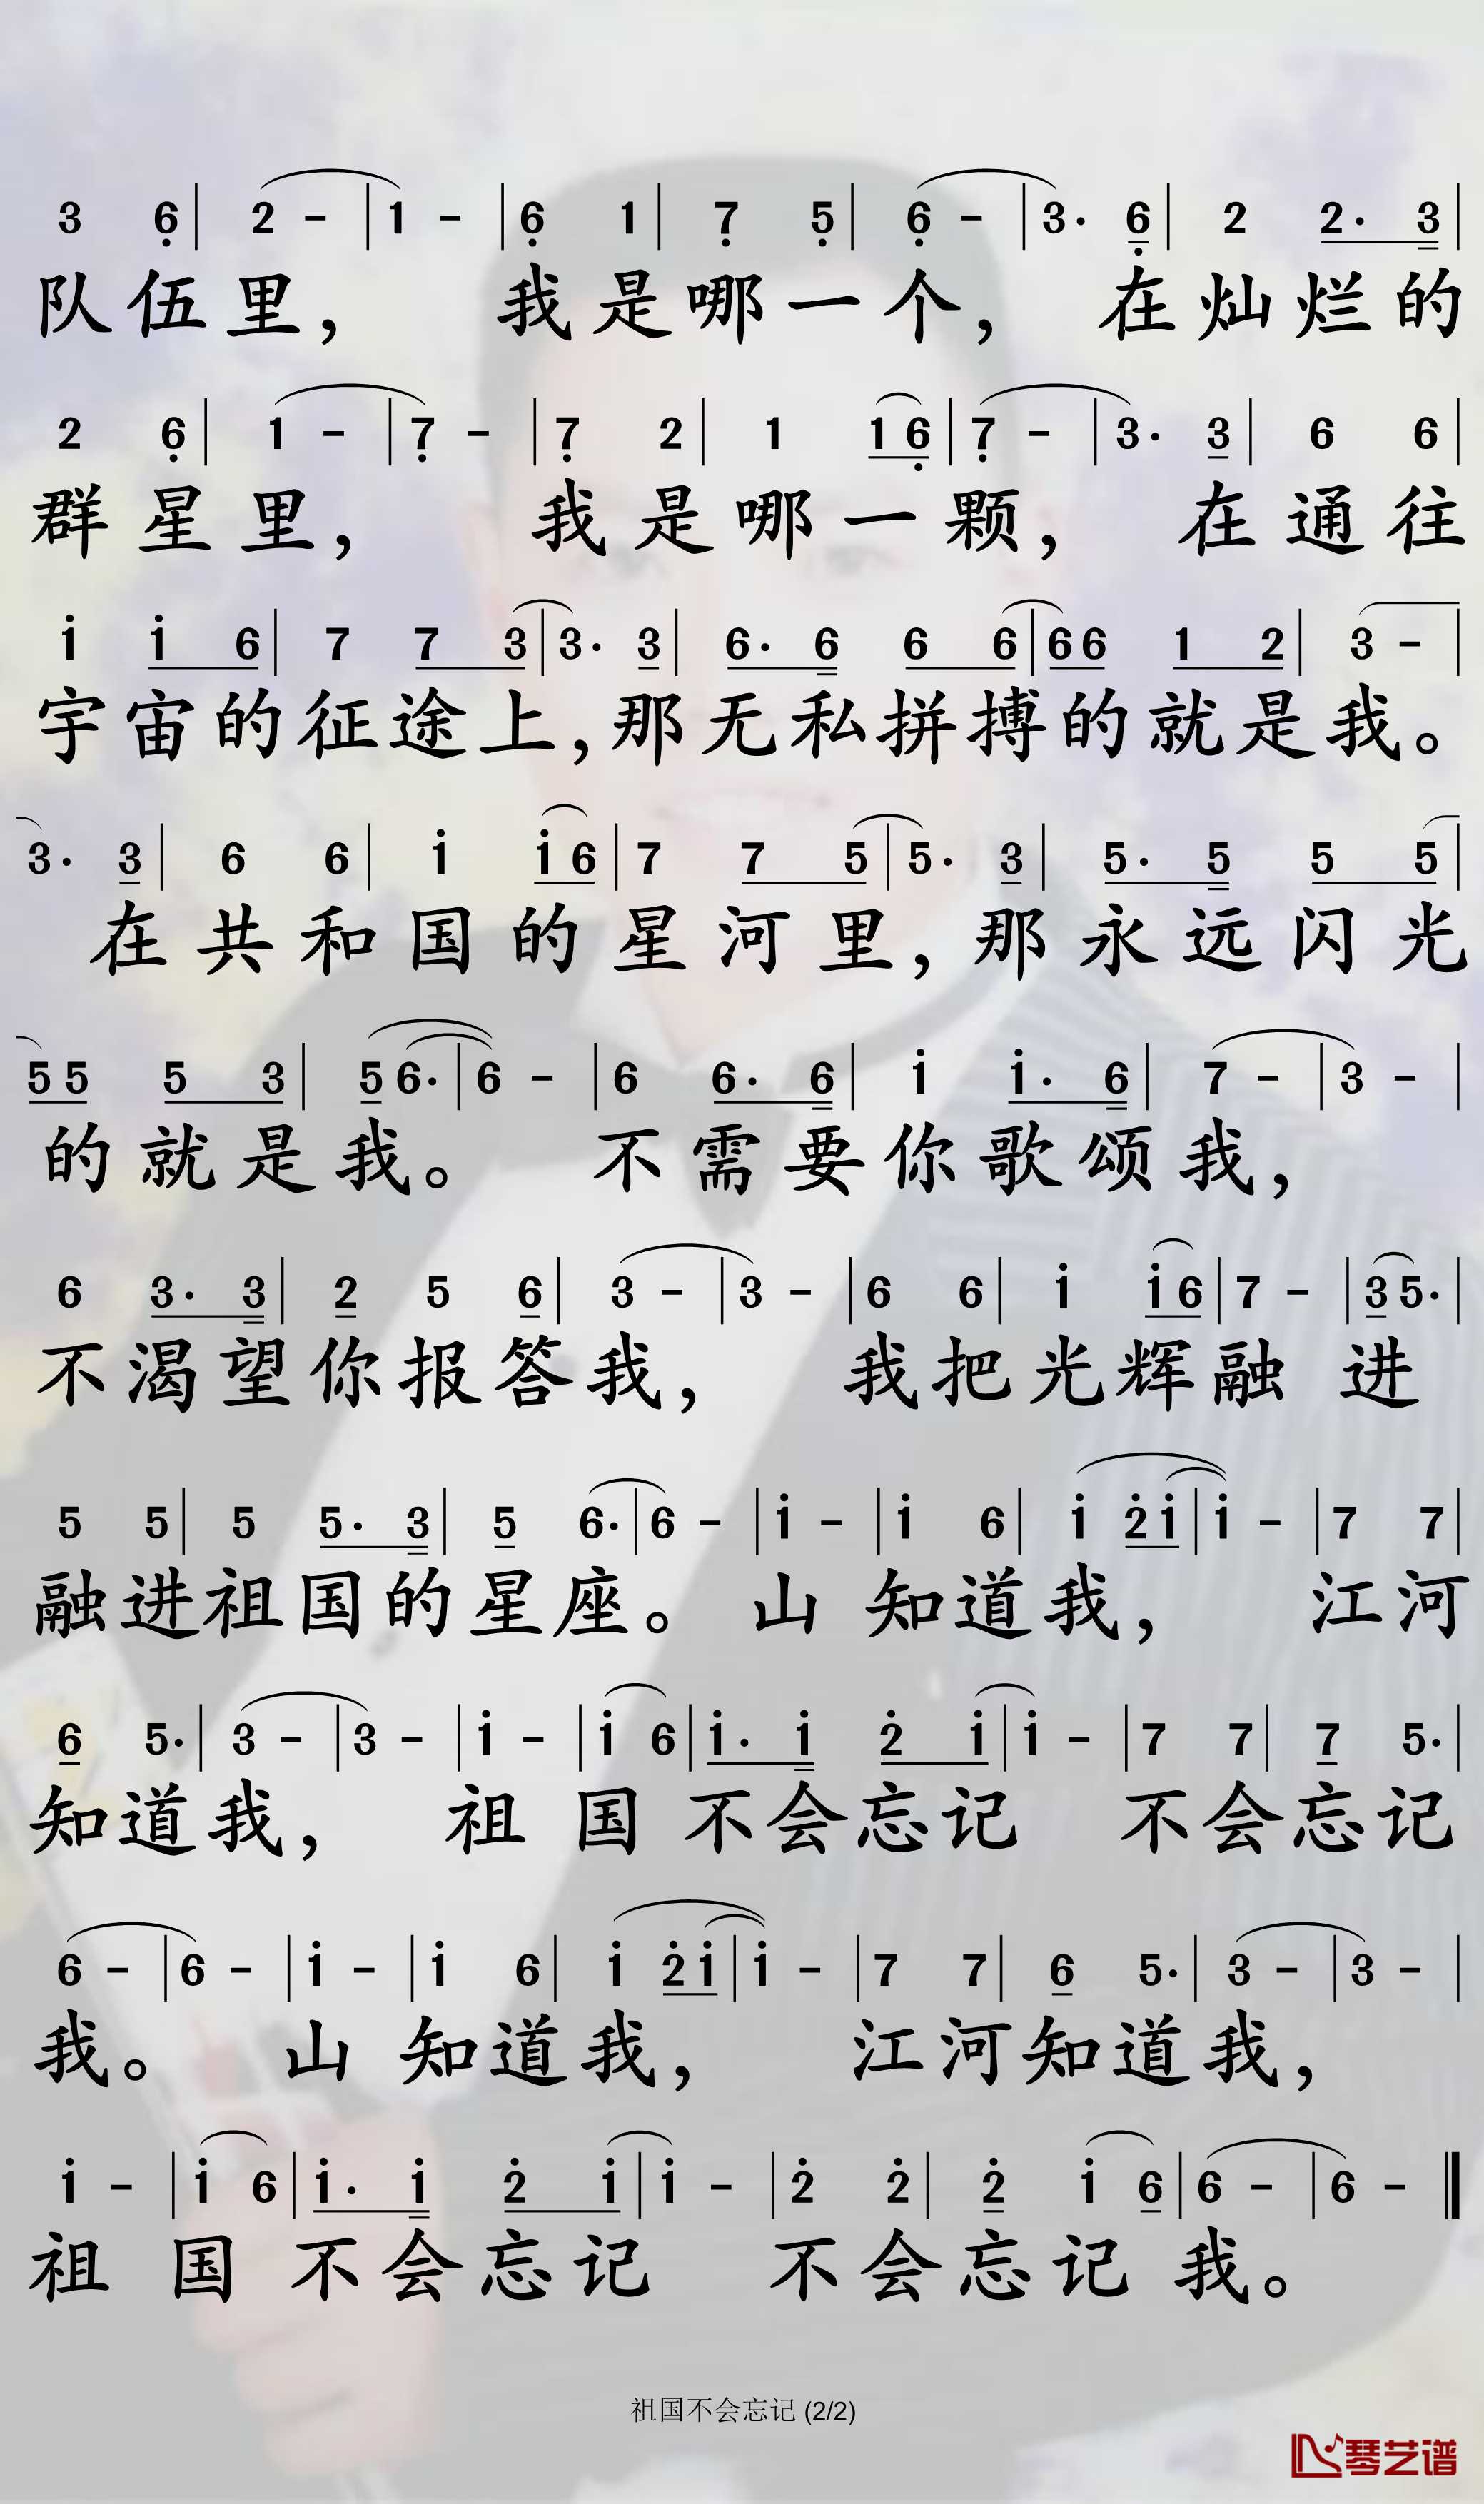 3 6̣ | 2 - | 1 - | 6̣ 1 | 7̣ 5̣ | 6̣ - | 3· 6̣ | 2 2· 3 |
队伍里， 我是哪一个， 在灿烂的
2 6̣ | 1 - | 7̣ - | 7̣ 2 | 1 1 6̣ | 7̣ - | 3· 3 | 6 6 |
群星里， 我是哪一颗， 在通往
i i 6 | 7 7 3 | 3· 3 | 6· 6 6 6 | 6 6 1 2 | 3 - |
宇宙的征途上，那无私拼搏的就是我。
3· 3 | 6 6 | i i 6 | 7 7 5 | 5· 3 | 5· 5 5 5 |
在共和国的星河里，那永远闪光
5 5 5 3 | 5 6· | 6 - | 6 6· 6 | i i· 6 | 7 - | 3 - |
的就是我。 不需要你歌颂我，
6 3· 3 | 2 5 6 | 3 - | 3 - | 6 6 | i i 6 | 7 - | 3 5· |
不渴望你报答我， 我把光辉融 进
5 5 | 5 5· 3 | 5 6· | 6 - | i - | i 6 | i 2̇ i | i - | 7 7 |
融进祖国的星座。 山 知道我， 江河
6 5· | 3 - | 3 - | i - | i 6 | i· i 2̇ i | i - | 7 7 | 7 5· |
知道我， 祖 国 不会忘记 不会忘记
6 - | 6 - | i - | i 6 | i 2̇ i | i - | 7 7 | 6 5· | 3 - | 3 - |
我。 山 知道我， 江河知道我，
i - | i 6 | i· i 2̇ i | i - | 2̇ 2̇ | 2̇ i 6 | 6 - | 6 - ‖
祖 国 不会忘记 不会忘记 我。
祖国不会忘记 (2/2)
琴艺谱